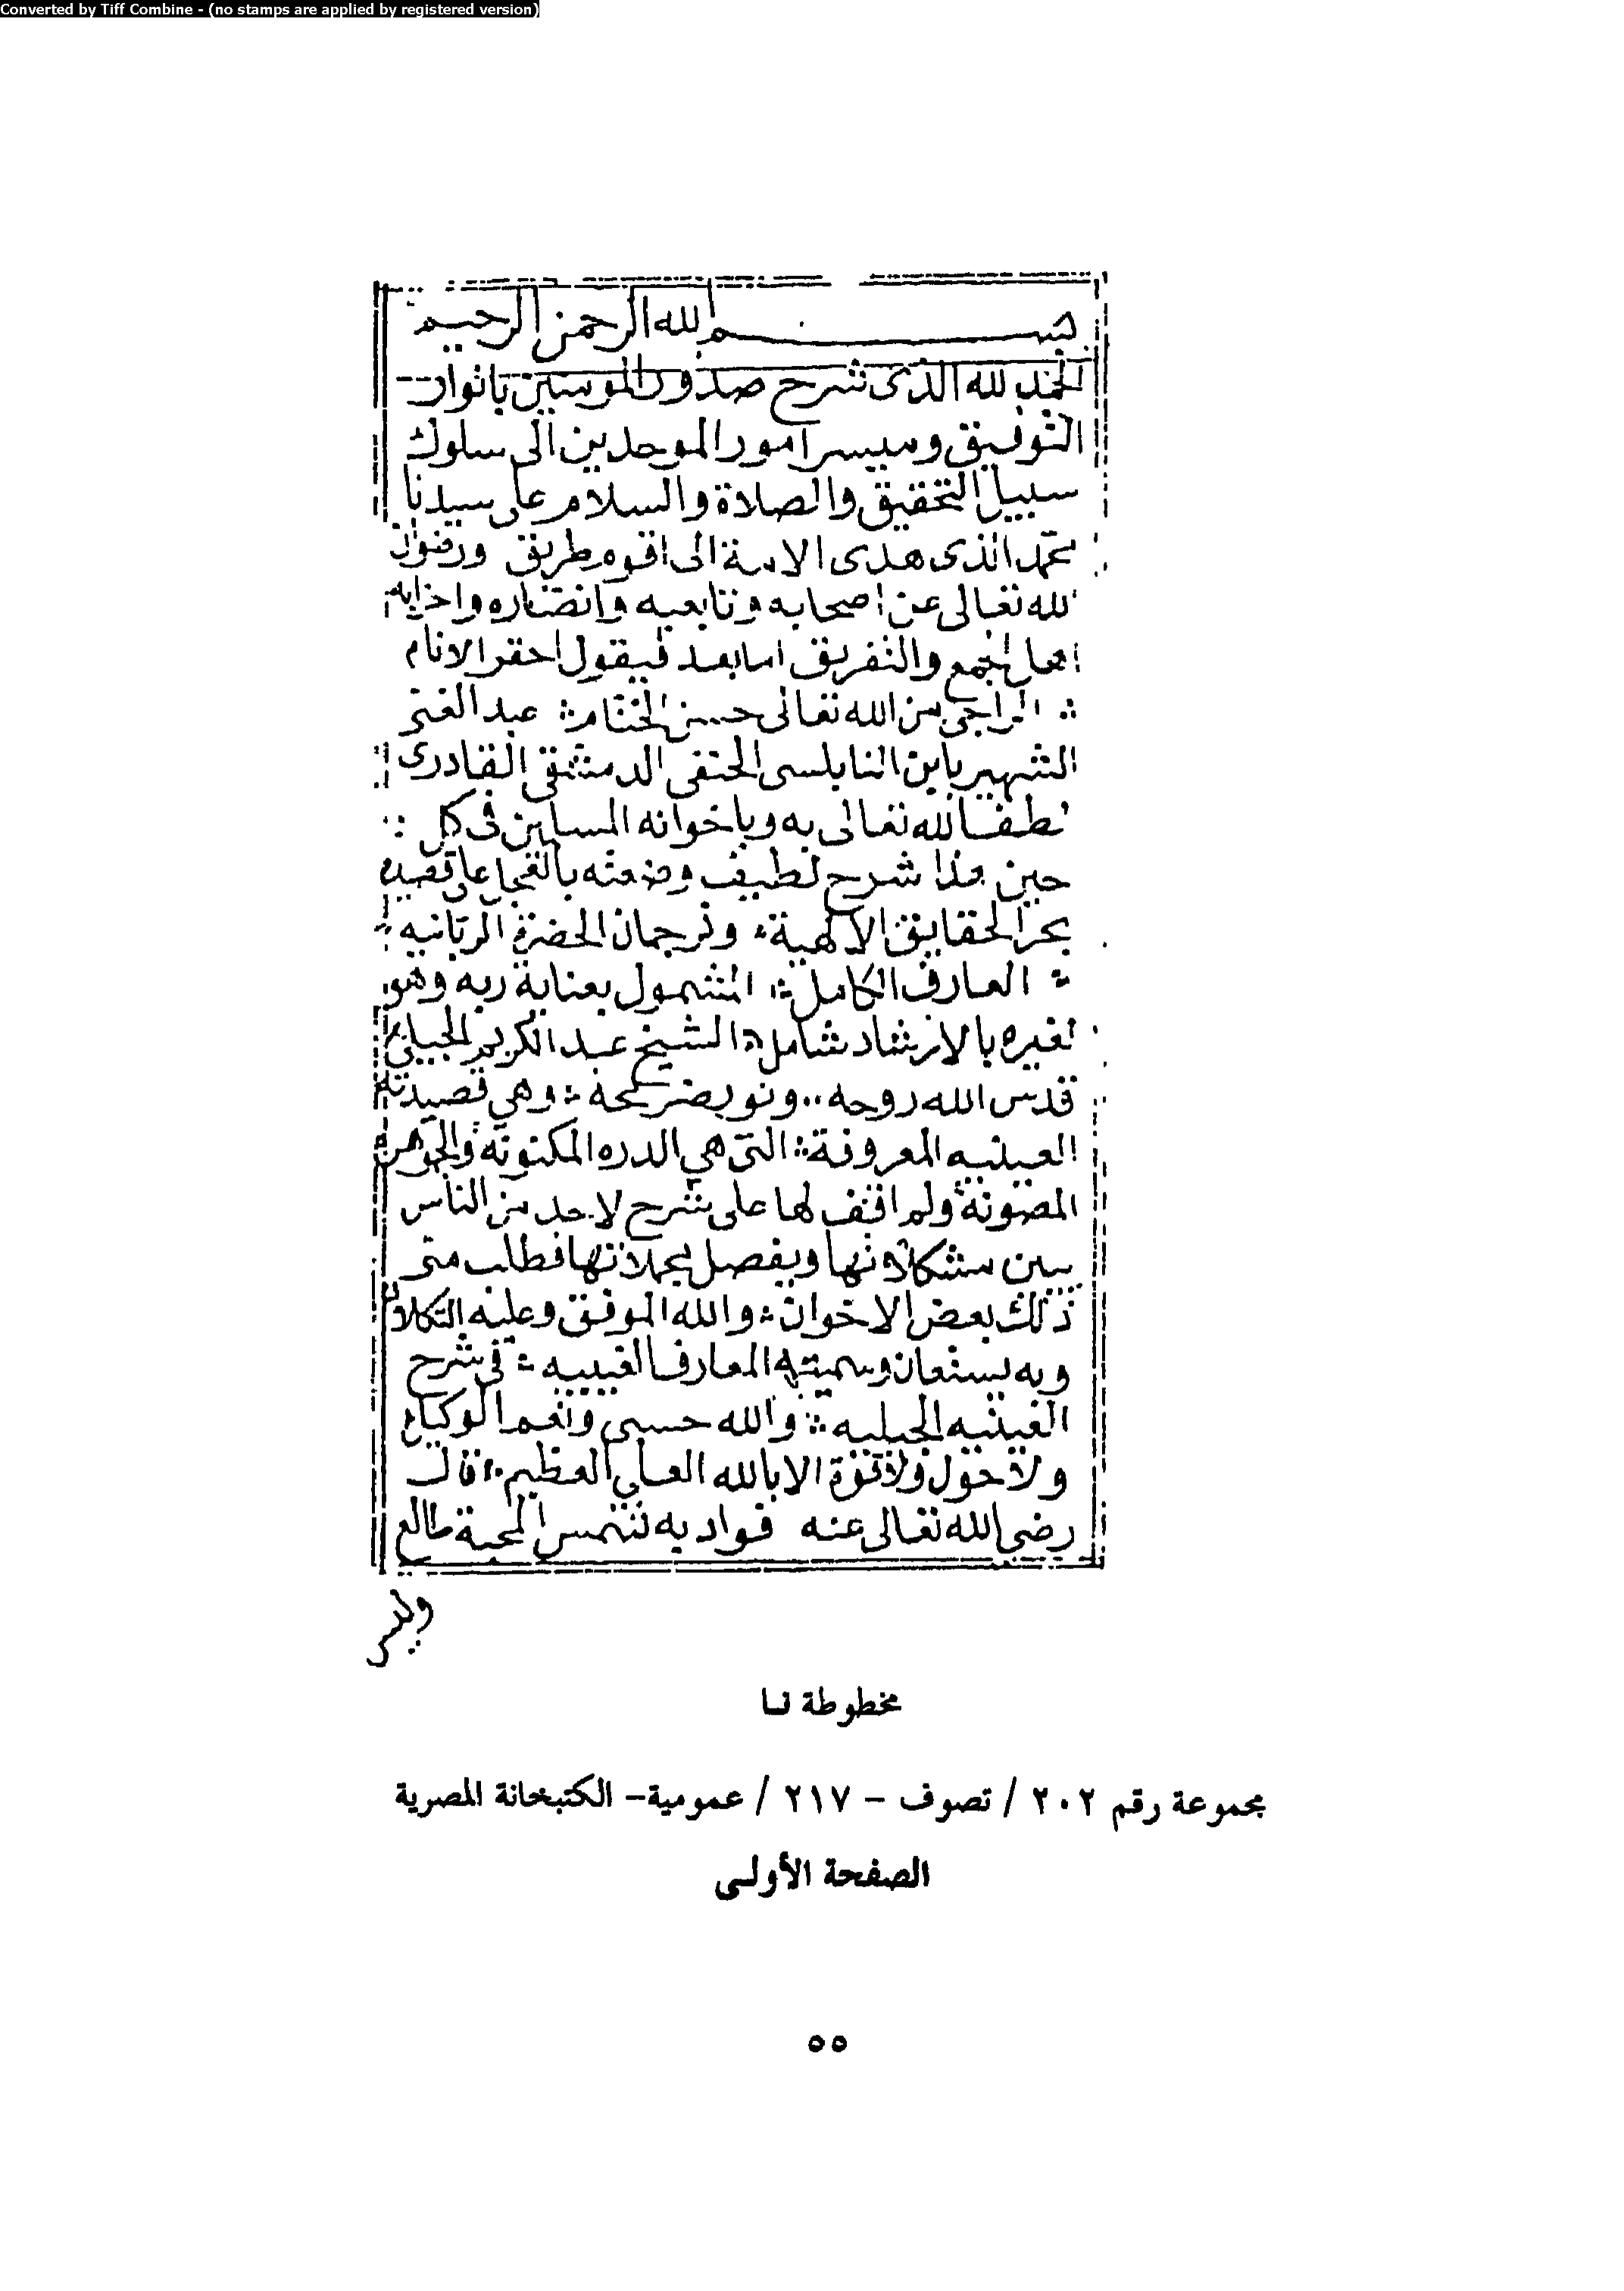 Converted by Tiff Combine - (no stamps are applied by registered version)
بسم الله الرحمن الرحيم
الحمد لله الذى شرح صدور المومنين بانوار
التوفيق وميسر امور الموحدين الى سلوك
سبيل التحقيق والصلاة والسلام على سيدنا
محمد الذى هدى الامة الى اقوم طريق ورضوان
الله تعالى عن اصحابه وتابعيه وانصاره واحزابه
اهل الجمع والتفريق اما بعد فيقول احقر الانام
الراجى من الله تعالى حسن الختام عبد الغنى
الشهير بابن النابلسى الحنفى الدمشقى القادرى
لطف الله تعالى به وباخوانه المسلمين فى كل
حين هذا شرح لطيف وضعته على قصيدة
بحر الحقايق الالهية وترجمان الحضرة الربانيه
العارف الكامل المشمول بعناية ربه وهو
لغيره بالارشاد شامل الشيخ عبد الكريم الجيلى
قدس الله روحه ونور ضريحه وهي قصيدته
العينيه المعروفة التى هي الدره المكنونة والجوهرة
المصونة ولم اقف لها على شرح لاحد من الناس
يبين مشكلاتها ويفصل مجملاتها فطلب منى
ذلك بعض الاخوان والله الموفق وعليه التكلان
وبه يستعان وسميته المعارف الغيبيه فى شرح
العينيه الجيليه والله حسبى ونعم الوكيل
ولا حول ولا قوة الا بالله العلي العظيم قال
رضى الله تعالى عنه فواد به شمس المحبة طالع
وليس
مخطوطة نا
مجموعة رقم ٢٠٢ / تصوف - ٢١٧ / عمومية- الكتبخانة المصرية
الصفحة الأولى
٥٥